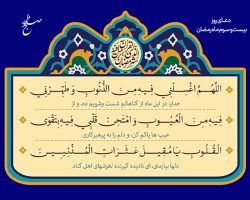 دعای روز
بیست و سوم ماه رمضان
اللَّهُمَّ اغْسِلْنِي فِيهِ مِنَ الذُّنُوبِ وَ طَهِّرْنِي
خدایا در این ماه از گناهانم شست وشویم ده، و از
فِيهِ مِنَ الْعُيُوبِ وَ امْتَحِنْ قَلْبِي فِيهِ بِتَقْوَى
عیب ها پاکم کن، و دلم را به پرهیزکاری
الْقُلُوبِ يَا مُقِيلَ عَثَرَاتِ الْمُذْنِبِينَ
دلها بیازمای، ای نادیده گیرنده لغزشهای اهل گناه.